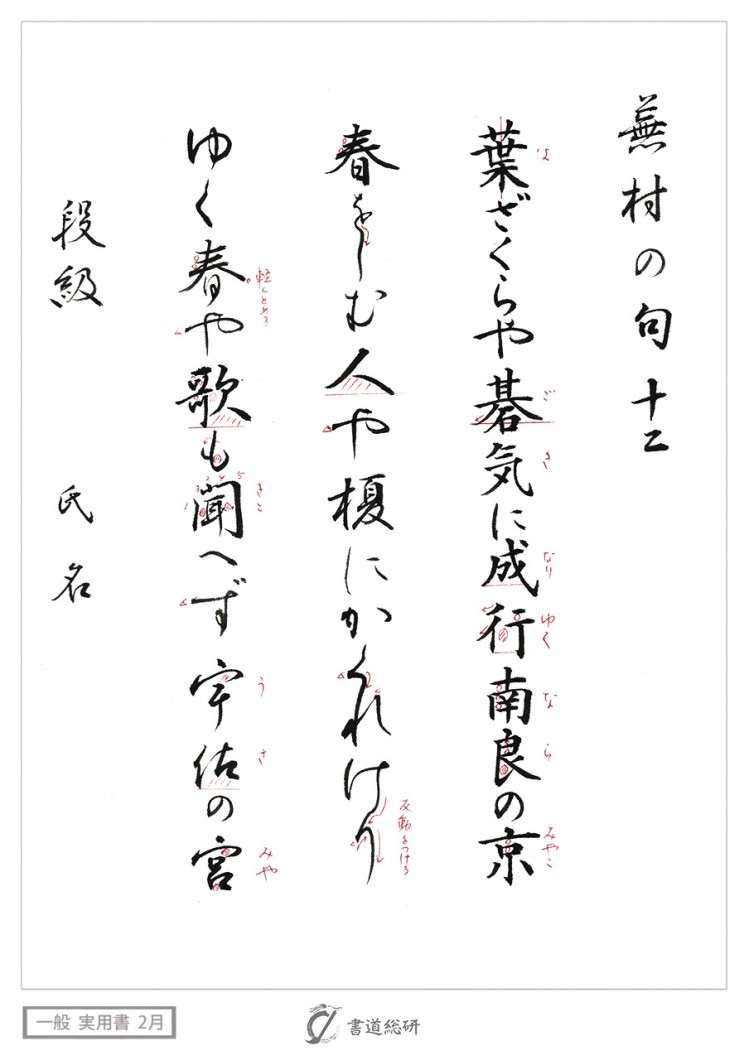 蕪村の句 十二
葉ざくらや碁気に成行南良の京
は
ご
き
なり
ゆく
な
ら
みやこ
春をしむ人や榎にかくれけり
反動をつける
ゆく春や歌も聞へず宇佐の宮
軽くとめる
きこ
う
さ
みや
段級 氏名
一般 実用書 2月
書道総研